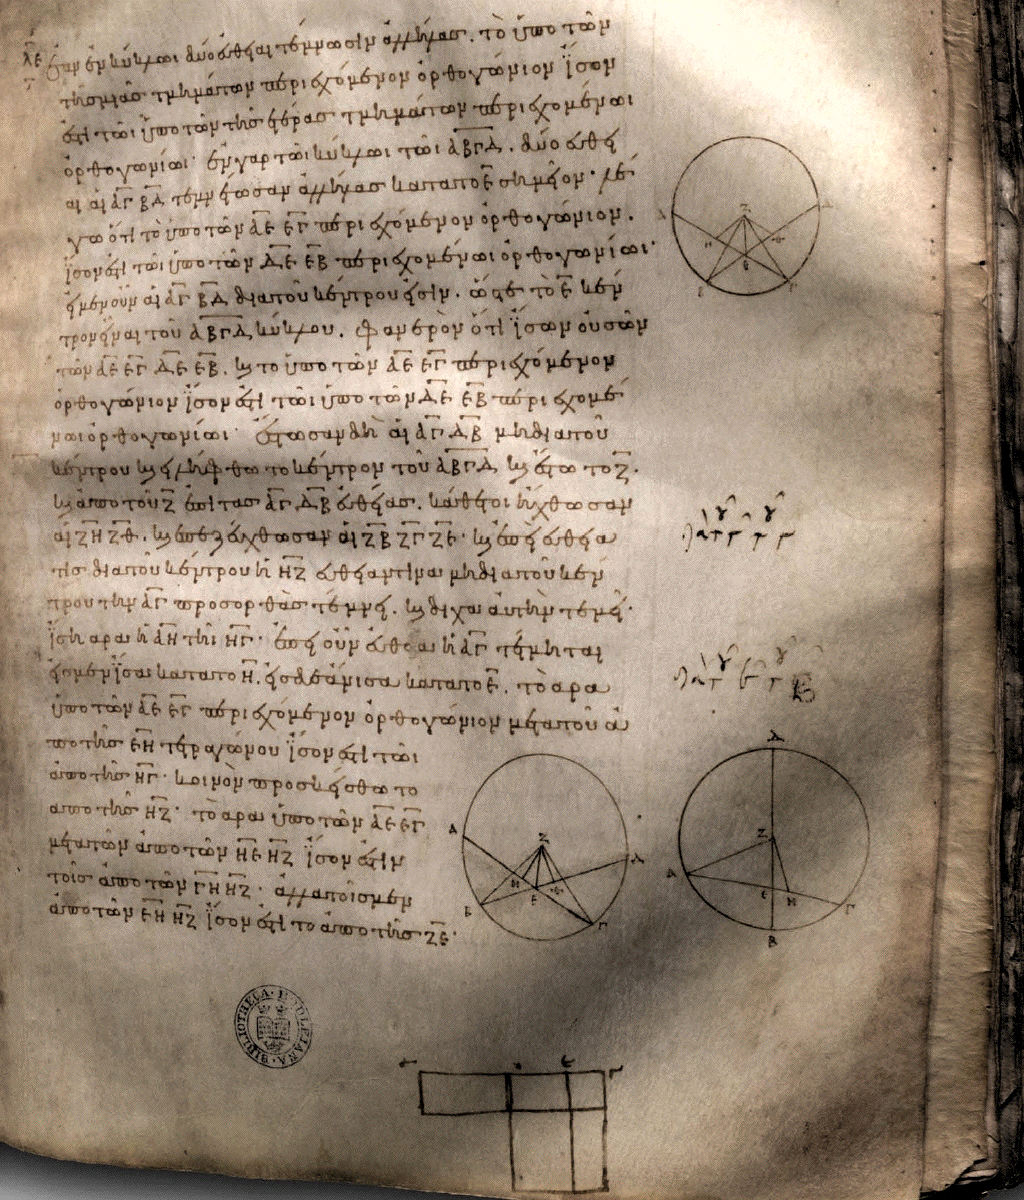 λε
ἐὰν ἐν κύκλωι δύο εὐθεῖαι τέμνωσιν ἀλλήλας. τὸ ὑπὸ τῶν
τῆς μιᾶς τμημάτων περιεχόμενον ὀρθογώνιον ἴσον
ἐστὶ τῶι ὑπὸ τῶν τῆς ἑτέρας τμημάτων περιεχομένωι
ὀρθογωνίωι· ἐν γὰρ τῶι κύκλωι τῶι ΑΒΓΔ. δύο εὐθεῖ
αι αἱ ΑΓ ΒΔ τεμνέτωσαν ἀλλήλας κατὰ τὸ Ε σημεῖον· λέ
γω ὅτι τὸ ὑπὸ τῶν ΑΕ ΕΓ περιεχόμενον ὀρθογώνιον.
ἴσον ἐστὶ τῶι ὑπὸ τῶν ΔΕ ΕΒ περιεχομένωι ὀρθογωνίωι·
εἰ μὲν οὖν αἱ ΑΓ ΒΔ διὰ τοῦ κέντρου εἰσίν. ὥστε τὸ Ε κέν
τρον εἶναι τοῦ ΑΒΓΔ κύκλου. φανερὸν ὅτι ἴσων οὐσῶν
τῶν ΑΕ ΕΓ ΔΕ ΕΒ. καὶ τὸ ὑπὸ τῶν ΑΕ ΕΓ περιεχόμενον
ὀρθογώνιον ἴσον ἐστὶ τῶι ὑπὸ τῶν ΔΕ ΕΒ περιεχομέ
νωι ὀρθογωνίωι· ἔστωσαν δὴ αἱ ΑΓ ΔΒ μὴ διὰ τοῦ
κέντρου καὶ εἰλήφθω τὸ κέντρον τοῦ ΑΒΓΔ καὶ ἔστω τὸ Ζ.
καὶ ἀπὸ τοῦ Ζ ἐπὶ τὰς ΑΓ ΔΒ εὐθείας. κάθετοι ἤχθωσαν
αἱ ΖΗ ΖΘ. καὶ ἐπεζεύχθωσαν αἱ ΖΒ ΖΓ ΖΕ· καὶ ἐπεὶ εὐθεῖα
τίς διὰ τοῦ κέντρου ἡ ΗΖ εὐθεῖαν τινα μὴ διὰ τοῦ κέν
τρου τὴν ΑΓ πρὸς ὀρθὰς τέμνει. καὶ δίχα αὐτὴν τέμνει·
ἴση ἄρα ἡ ΑΗ τῆι ΗΓ· ἐπεὶ οὖν εὐθεῖα ἡ ΑΓ τέτμηται
εἰς μὲν ἴσα κατὰ τὸ Η. εἰς δὲ ἄνισα κατὰ τὸ Ε. τὸ ἄρα
ὑπὸ τῶν ΑΕ ΕΓ περιεχόμενον ὀρθογώνιον μετὰ τοῦ ἀ
πὸ τῆς ΕΗ τετραγώνου ἴσον ἐστὶ τῶι
ἀπὸ τῆς ΗΓ· κοινὸν προσκείσθω τὸ
ἀπὸ τῆς ΗΖ· τὸ ἄρα ὑπὸ τῶν ΑΕ ΕΓ
μετὰ τῶν ἀπὸ τῶν ΗΕ ΗΖ ἴσον ἐστὶν
τοῖς ἀπὸ τῶν ΓΗ ΗΖ· ἀλλὰ τοῖς μὲν
ἀπὸ τῶν ΕΗ ΗΖ ἴσον ἐστὶ τὸ ἀπὸ τῆς ΖΕ·
Α
Δ
Ζ
Η
Θ
Ε
Β
Γ
Α
Δ
Ζ
Η
Θ
Ε
Β
Γ
Δ
Ζ
Α
Ε
Η
Γ
Β
BIBLIOTHECA BODLEIANA